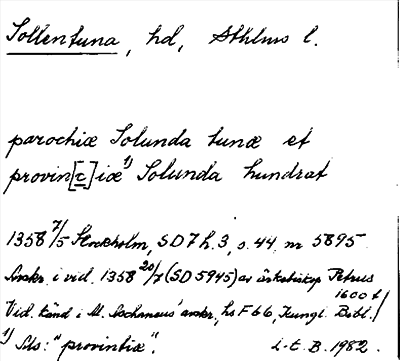 Sollentuna, hd, Sthlms l.
parochiæ Solunda tunæ et
provin[c]iæ¹⁾ Solunda hundrat
1358 7/5 Stockholm, SD 7 h. 3, s. 44 nr 5895.
Avskr. i vid. 1358 20/7 (SD 5945) av ärkebiskop Petrus
Vid. känd i M. Aschaneus' avskr., hs F b 6, Kungl. Bibl./
1600 t
¹⁾ Sts: "provintiæ".
L-E. B. 1982.